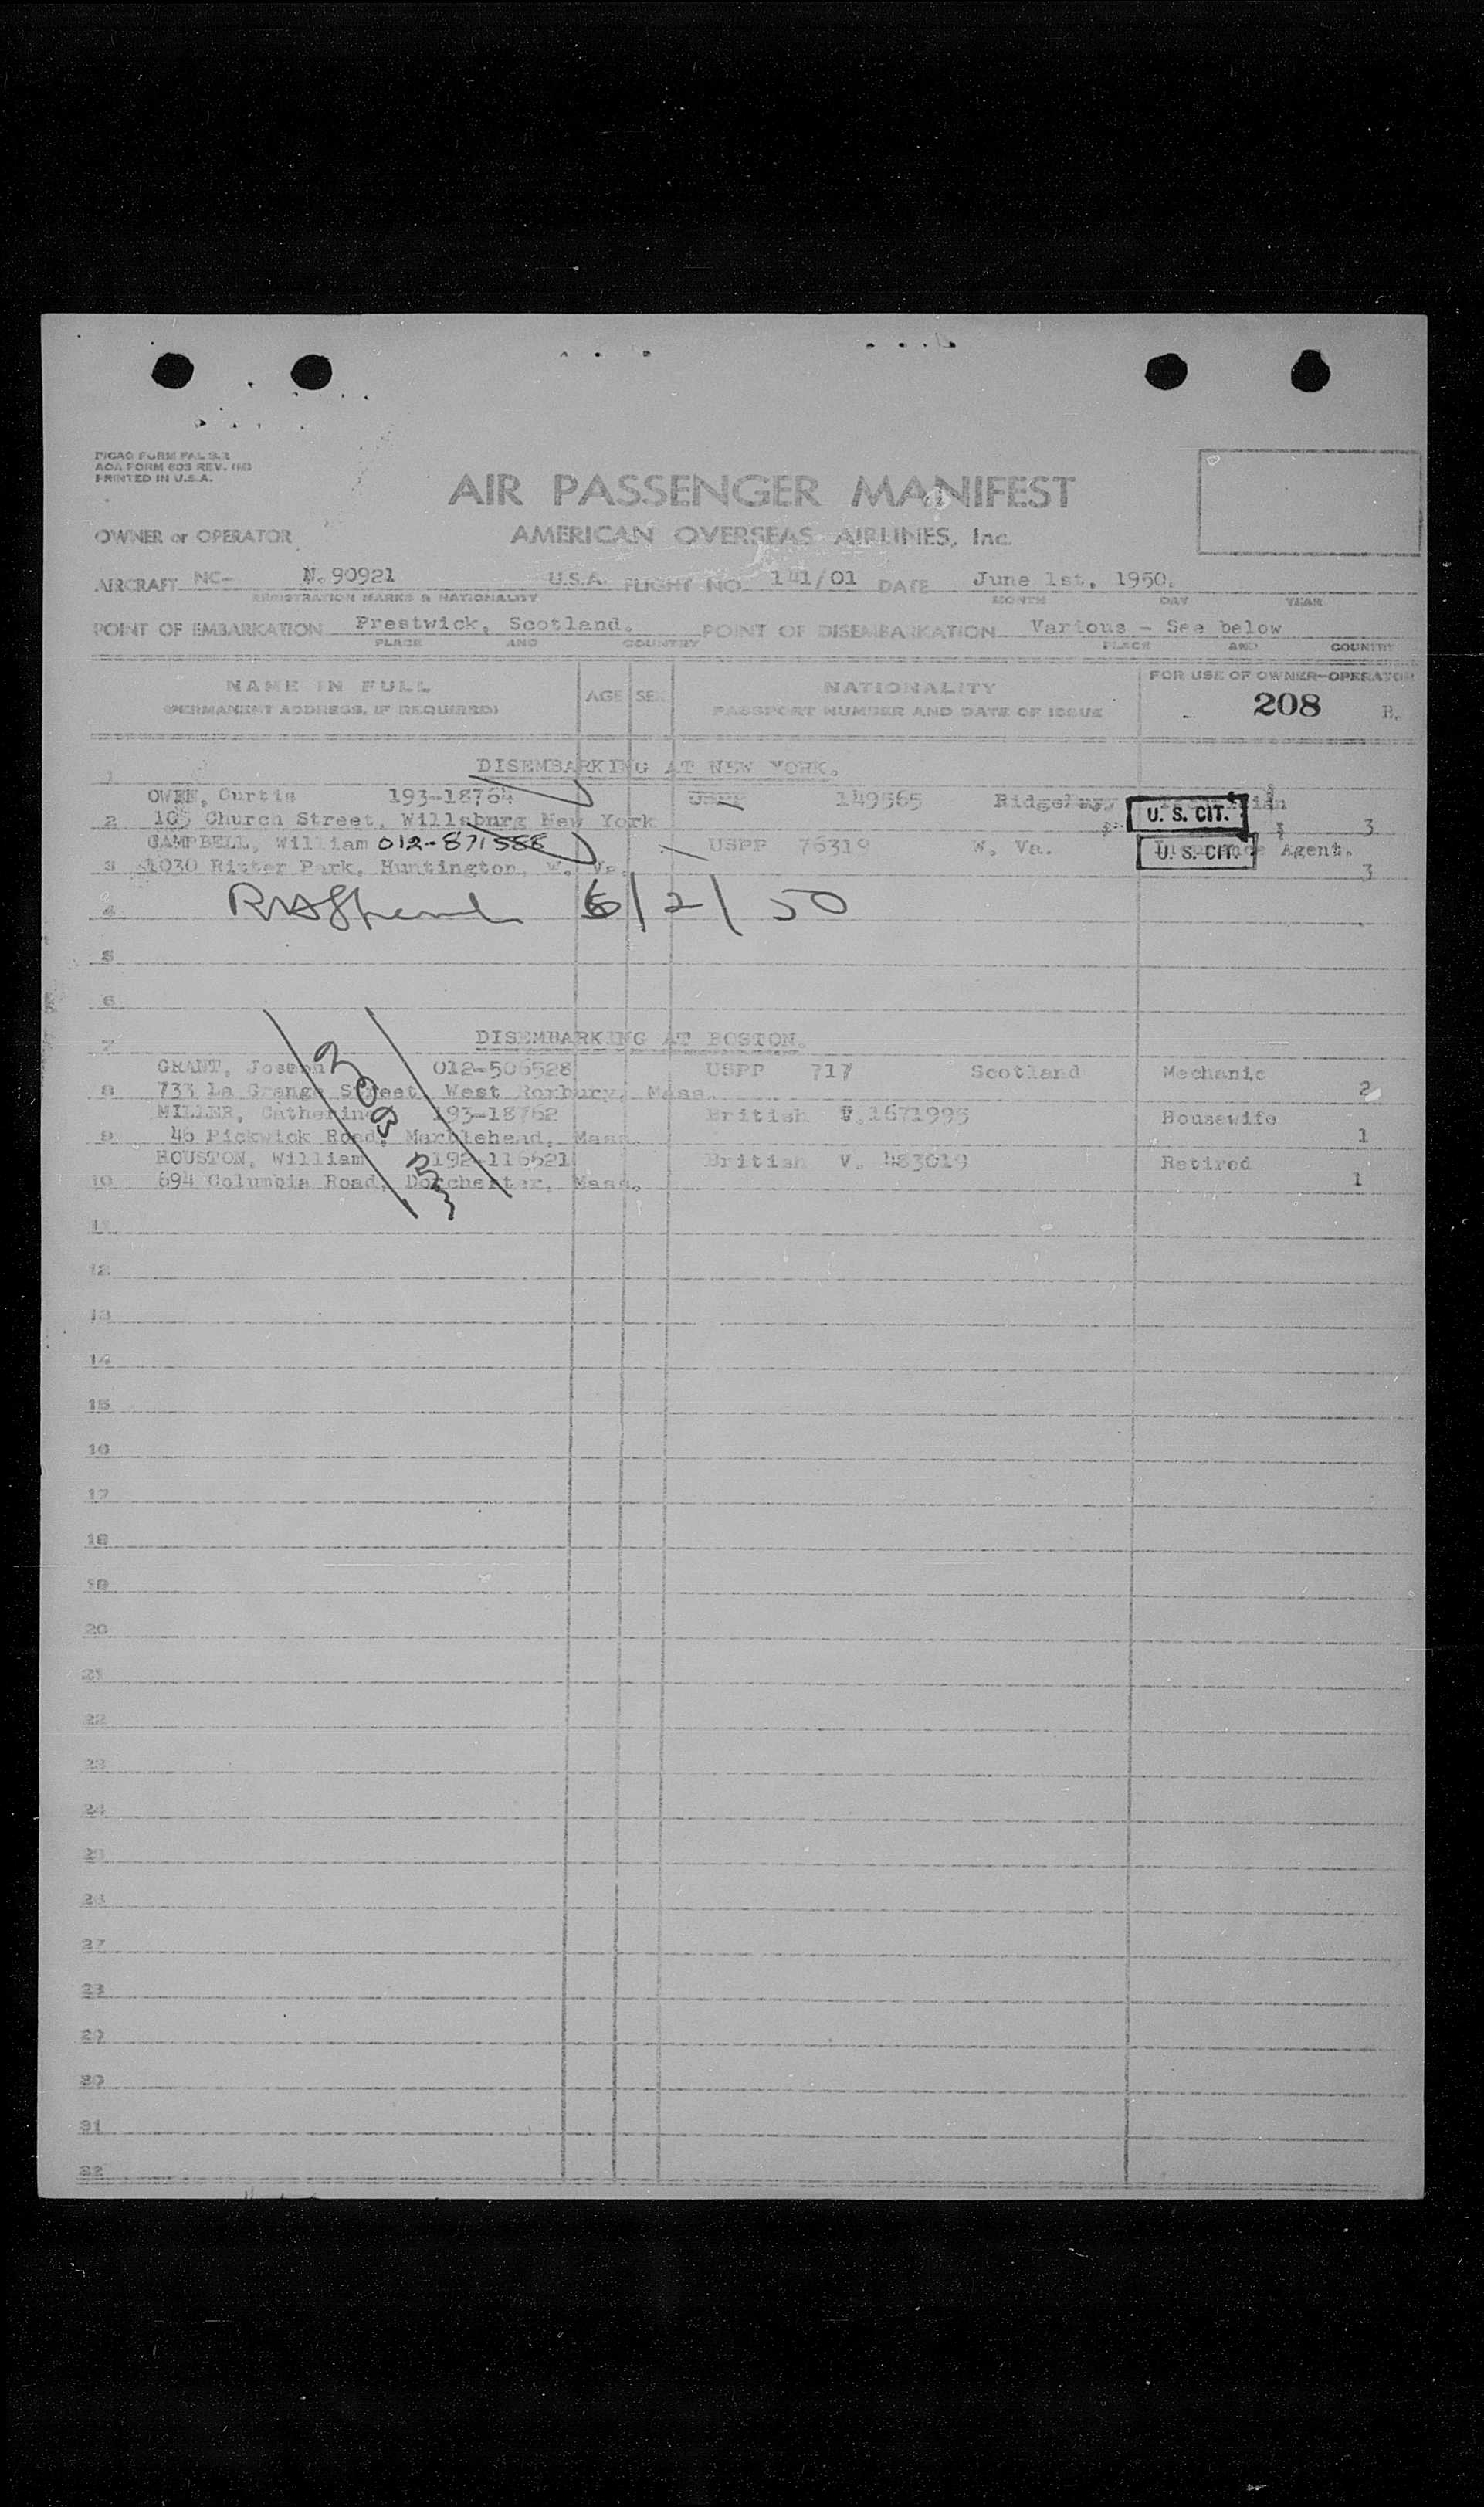 PICAO FORM FAL 3.2
AOA FORM 803 REV.
PRINTED IN U.S.A.
AIR PASSENGER MANIFEST
OWNER or OPERATOR AMERICAN OVERSEAS AIRLINES, Inc.
AIRCRAFT NC- N.90921 U.S.A. FLIGHT NO. 141/01 DATE June 1st, 1950.
REGISTRATION MARKS & NATIONALITY MONTH DAY YEAR
POINT OF EMBARKATION Prestwick, Scotland. POINT OF DISEMBARKATION Various - See below
PLACE AND COUNTRY PLACE AND COUNTRY
NAME IN FULL AGE SEX NATIONALITY FOR USE OF OWNER-OPERATOR
(PERMANENT ADDRESS, IF REQUIRED) PASSPORT NUMBER AND DATE OF ISSUE 208 B.
1 DISEMBARKING AT NEW YORK.
OWEN, Curtis 193-18764 USPP 149565
2 105 Church Street, Willsburg New York U. S. CIT. 3
CAMPBELL, William 012-871588 USPP 76319 W. Va. Insurance Agent.
3 1030 Ritter Park, Huntington, W. Va. U. S. CIT. 3
4 6/2/50
5
6
7 DISEMBARKING AT BOSTON.
GRANT, Joseph 012-506528 USPP 717 Scotland Mechanic
8 733 La Grange Street, West Roxbury, Mass. 2
MILLER, Catherine 193-18762 British 1671995 Housewife
9 46 Pickwick Road, Marblehead, Mass. 1
HOUSTON, William 192-116621 British V. 483019 Retired
10 694 Columbia Road, Dorchester, Mass. 1
11
12
13
14
15
16
17
18
19
20
21
22
23
24
25
26
27
28
29
30
31
32